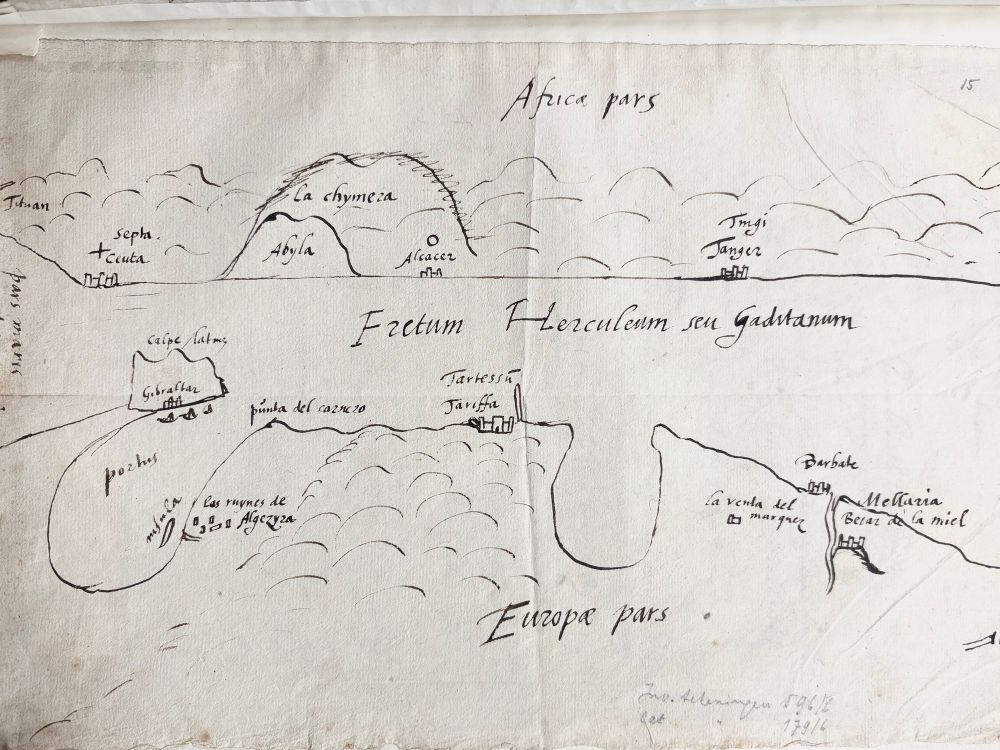 15
Africæ pars
la chymera
Tituan
Septa.
Ceuta
Abyla
Alcacer
Tingi
Tanger
pars maris
Fretum Herculeum seu Gaditanum
Calpe
Gibraltar
Tartessū
Tariffa
punta del carnero
portus
insula
Las ruynes de
Algezyra
Barbate
la venta del
marquez
Mellaria
Bejar de la miel
Europæ pars
Inv.
596/E
Cat
179/6